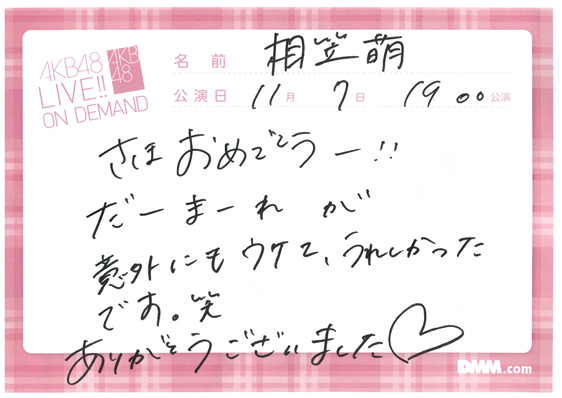 AKB48
LIVE!!
ON DEMAND
AKB
48
名前 相笠萌
公演日 11月7日 19:00公演
さほ おめでとうー!!
だーまーれ が
意外にもウケて、うれしかった
です。笑
ありがとうございました♡
DMM.com